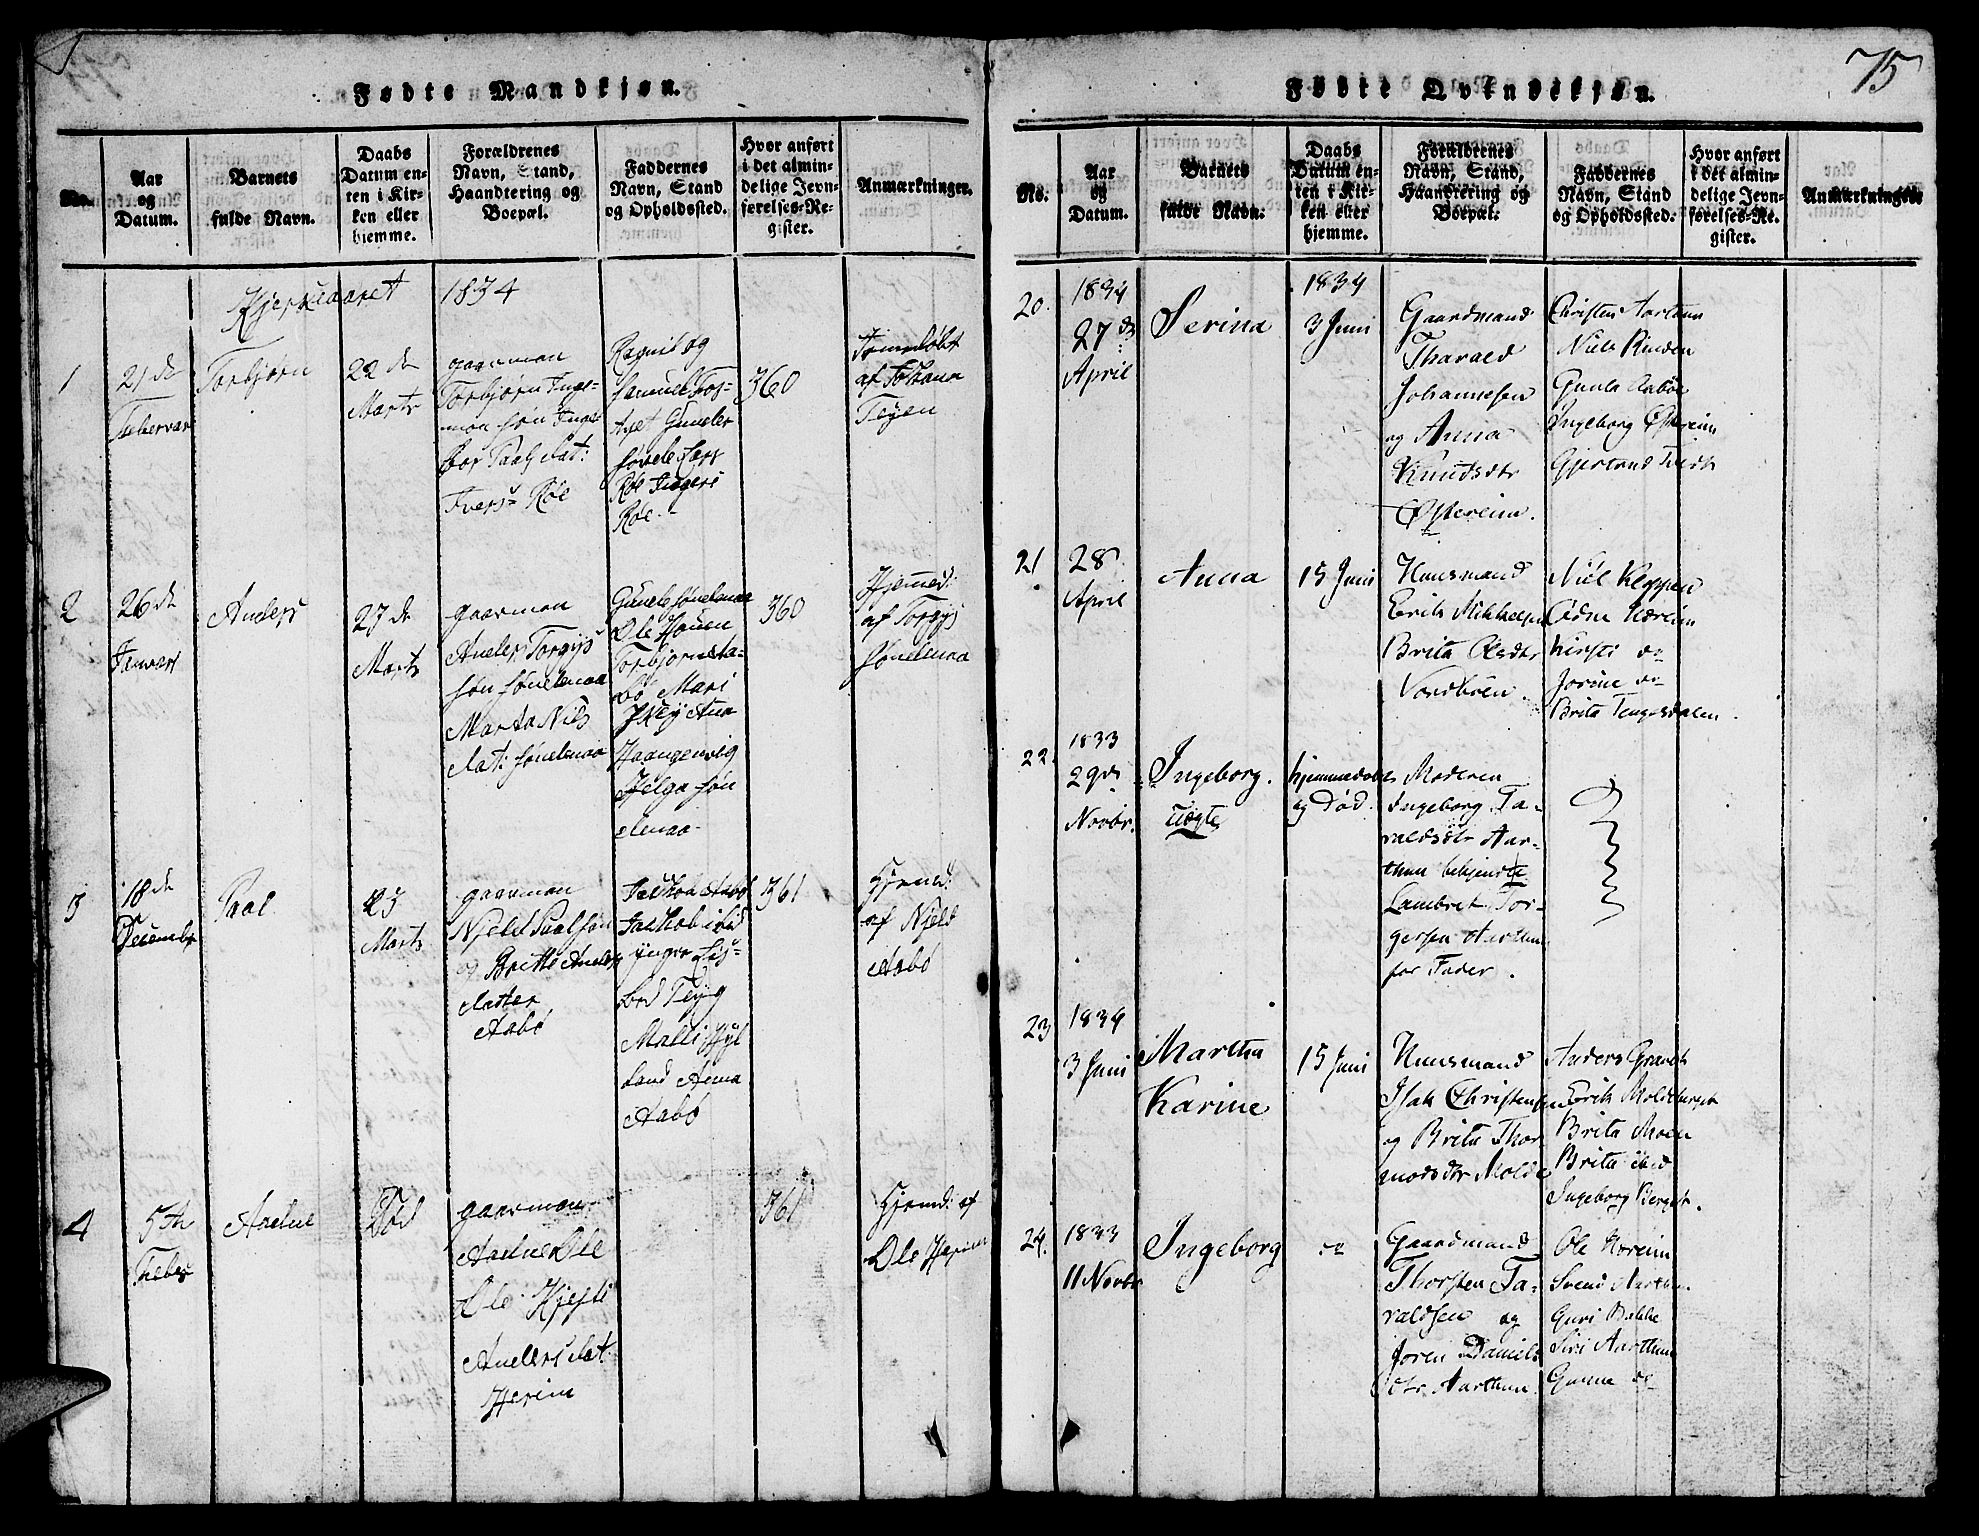 75
Fødte Mandkjøn.
No.
Aar
og
Datum.
Barnets
fulde Navn.
Daabs
Datum en-
ten i Kir-
ken eller
hjemme.
Forældrenes
Navn, Stand,
Haandtering og
Boepæl.
Faddernes
Navn, Stand
og Opholdssted.
Hvor anført
i det almin-
delige Jevn-
førelses-Re-
gister.
Anmærkninger.
Kjerkeaaret 1834
1
21 de
Febervar
Torbjørn
22 de
Marts
gaarman
Torbjørn Inge-
mon søn Inge
bor Paals dat:
Ivers= Røe
Ragnil og
Samuel
Gunder
Lars
Røe Ingeri
Røe.
360
af Johana
Teyen
2
26 de
Januari
Anders
27 de
Marts
gaarman
Anders Torgijs
søn søndenaa
Marta Nils
dat: søndenaa
Gunele sønelenaa
Ole Houen
Torbjørn
bø Mari
Ana
Haangenvig
Helga søn
denaa
360
Hjemed:
af Torgijs
sønelenaa
3
18 de
Desember
Paal
25
Marts
gaarman
Njeld Paalsøn
og Britte Anders
datter
Aabø
Jakob Aabø
Jakob ibid
ynger
Teyg
Malli Hyl
land Anna
Aabø
361
Hjemd:
af Njeld
Aabø
4
5 th
Feber
Aadne
Død
gaarman
Aadne Ole
Ole Kjesti
Anders dat:
Herim
361
Hjemd: af
Ole Herim
Fødte Qvindekjøn.
No.
Aar
og
Datum.
Barnets
fulde Navn.
Daabs
Datum en-
ten i Kir-
ken eller
hjemme.
Forældrenes
Navn, Stand,
Haandtering og
Boepæl.
Faddernes
Navn, Stand
og Opholdssted.
Hvor anført
i det almin-
delige Jevn-
førelses-Re-
gister.
Anmærkninger
20.
1834
27 de
April
Serina
1834
3 Juni
Gaardmand
Tharald
Johannesen
og Anna
Knudsdtr
Østereim.
Christen Aarthun
Niels Rinden
Gunla Aabøe
Ingeborg Østereim
Gjertrud Tvedt
21
28
April
Anna
15 Juni
Huusmand
Eerik Mikkelsen
Brita Olsdtr
Nordbøen.
Niel Kleppen
Odne Høreim
Kirsti do
Jorine do
Brita Tengesdalen.
22.
1833
29de
Novbr.
Ingeborg.
uægte
hjemmedøbt
og død.
Moderen
Ingeborg Ta-
raldsdtr Aar-
thun bekjendte
Lambret Tor-
gersen Aarthun
for Fader.
23
1834
3 Juni
Martha
Karine
15 Juni
Huusmand
Isak Christensen
og Brita Thor
modsdtr Molde
Anders Gravdt
Erik Moldeberget
Brita Moen
Brita ibid
Ingeborg Berget.
24.
1833
11 Novbr
Ingeborg
do
Gaardmand
Thorsten Ta-
raldsen og
Joren Daniels
dtr. Aarthun.
Ole Høreim
Svend Aarthun.
Guri Bakke
Siri Aarthun
Gunne do